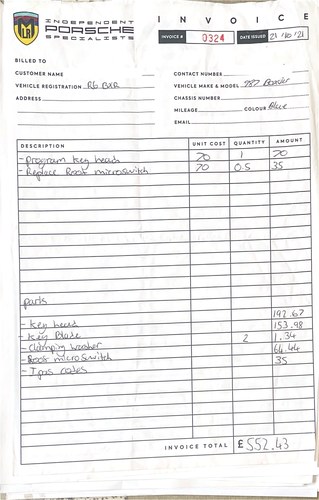 INDEPENDENT
PORSCHE
SPECIALISTS
INVOICE
INVOICE # 0324 DATE ISSUED 21/10/21
BILLED TO
CUSTOMER NAME
VEHICLE REGISTRATION R6 BXR
ADDRESS
CONTACT NUMBER
VEHICLE MAKE & MODEL 987 Boxster
CHASSIS NUMBER
MILEAGE COLOUR Blue
EMAIL
DESCRIPTION UNIT COST QUANTITY AMOUNT
- Program key head 70 1 70
- Replace Boot microswitch 70 0.5 35
parts
192.67
- key head 153.98
- key Blade 2 1.34
- Clamping washer 64.44
- Boot microswitch 35
- Ipas codes
INVOICE TOTAL £552.43